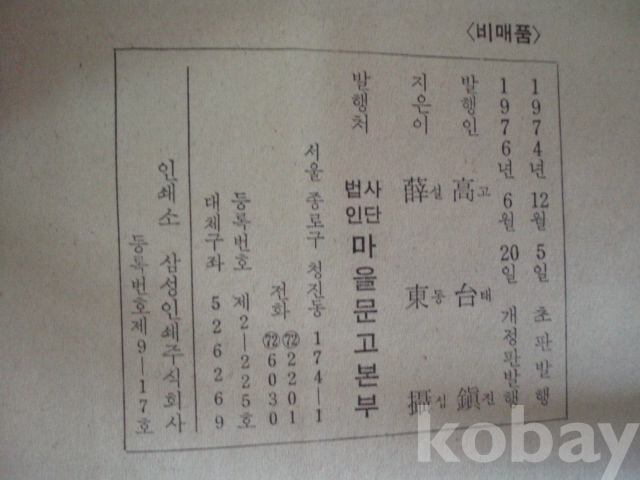 〈비매품〉
1974년 12월 5일 초판발행
1976년 6월 20일 개정판발행
발행인 高고 台태 鎭진
지은이 薛설 東동 攝섭
발행처 사단법인 마을문고본부
서울 종로구 청진동 174—1
전화 ㉒2201
㉒6030
등록번호 제2—225호
대체구좌 526269
인쇄소 삼성인쇄주식회사
등록번호제9—17호
kobay